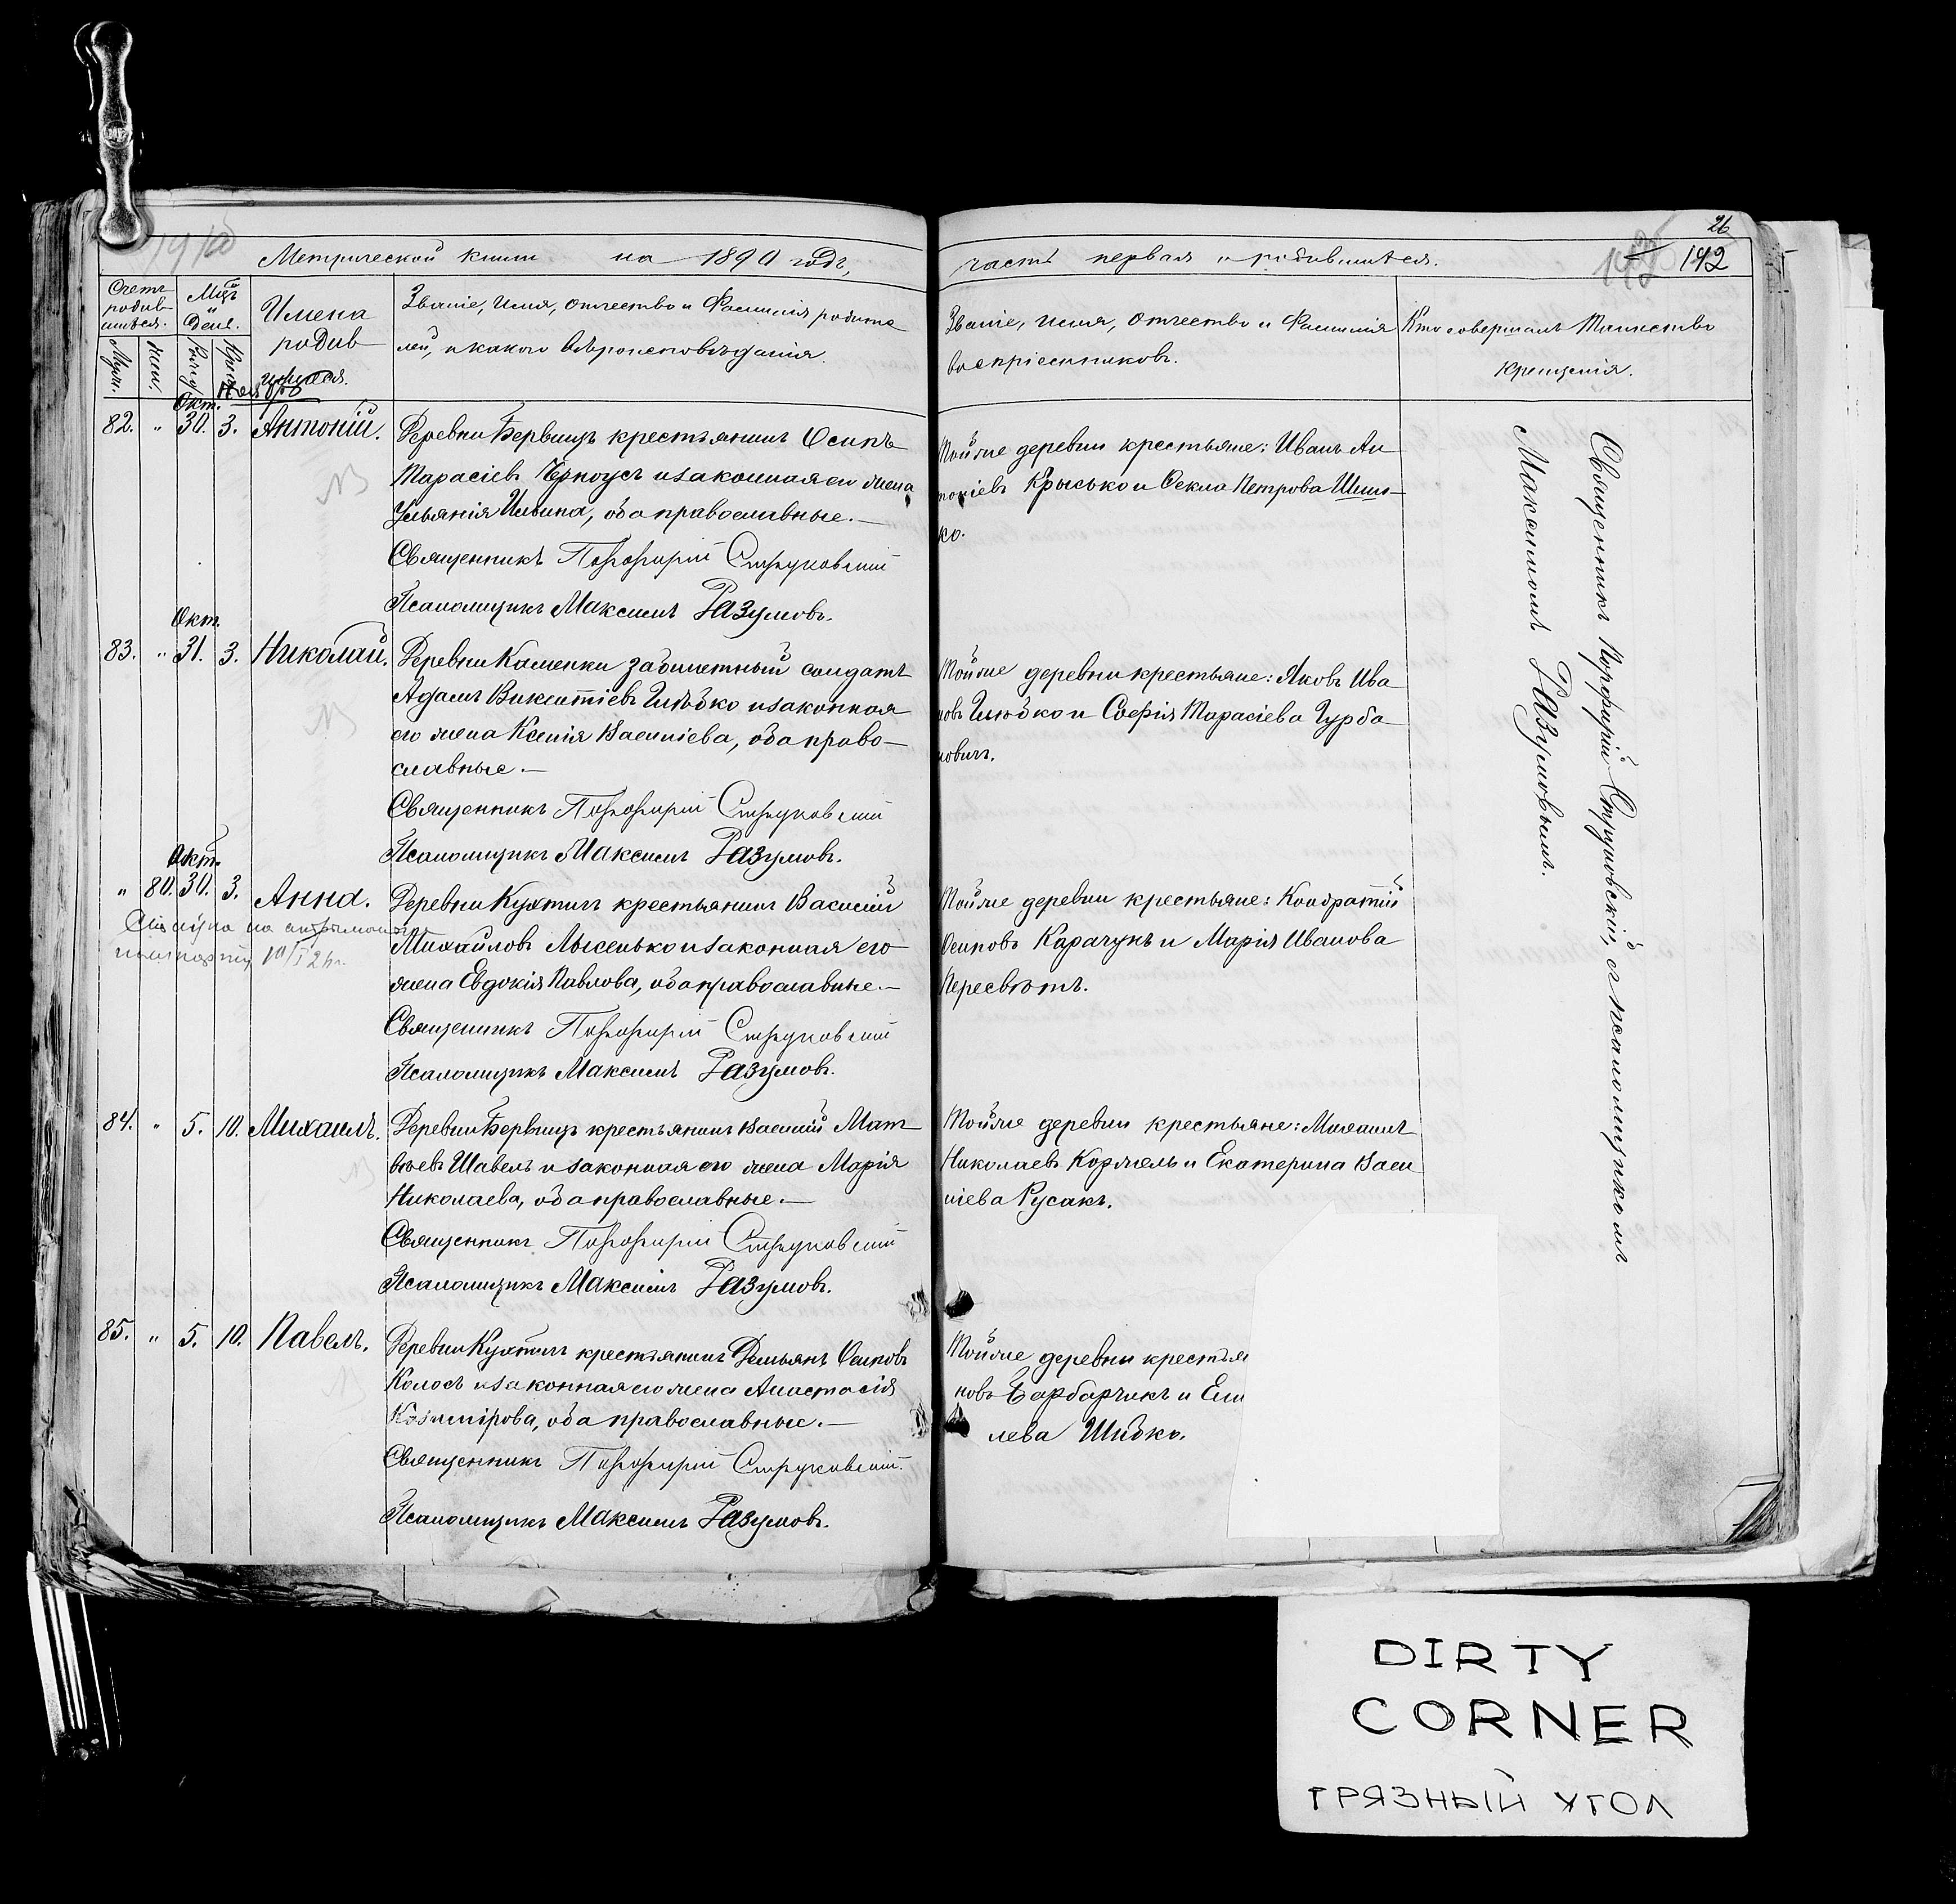 Метрической книги на 1890 годъ,
Счетъ родив-
шихся.
Мцъ
и
День.
Имена
родив
шихся.
Званіе, имя, отчество и фамилія родите
лей, и какого вѣроисповѣданія.
Муж. Жен. Рожд. Крещ.
Окт. Ноябрь
82. " 30. 3. Антоній.
Деревни Бервищъ крестьянинъ Осипъ
Тарасіевъ Черноусъ и законная его жена
Ульянія Ильина, оба православные.—
Священникъ Порфирій Струковскій
Псаломщикъ Максимъ Разумовъ.
Окт.
83. " 31. 3. Николай.
Деревни Каменки забилетный солдатъ
Адамъ Викентіевъ Глѣбко и законная
его жена Ксенія Василіева, оба право—
славные.—
Священникъ Порфирій Струковскій
Псаломщикъ Максимъ Разумовъ.
Окт.
" 80. 30. 3. Анна.
Деревни Кухтичъ крестьянинъ Василій
Михайловъ Лысенько и законная его
жена Евдокія Павлова, оба православные.—
Священникъ Порфирій Струковскій
Псаломщикъ Максимъ Разумовъ.
84. " 5. 10. Михаилъ.
Деревни Бервищъ крестьянинъ Василій Мат
вѣевъ Шавель и законная его жена Марія
Николаева, оба православные.—
Священникъ Порфирій Струковскій
Псаломщикъ Максимъ Разумовъ.
85. " 5. 10. Павелъ.
Деревни Кухтичъ крестьянинъ Демьянъ Осиповъ
Колосъ и законная его жена Анастасія
Казимірова, оба православные.—
Священникъ Порфирій Струковскій.
Псаломщикъ Максимъ Разумовъ.
26
142
часть первая о родившихся.
Званіе, имя, отчество и фамилія
воспріемниковъ.
Кто совершалъ Таинство
крещенія.
Той же деревни крестьяне: Иванъ Ан
тоніевъ Крысько и Ѳекла Петрова Шиш—
ко.
Той же деревни крестьяне: Яковъ Ива
новъ Глѣбко и Софія Тарасіева Гурба
новичъ.
Той же деревни крестьяне: Кондратій
Осиповъ Карачунъ и Марія Иванова
Пересвѣтъ.
Той же деревни крестьяне: Михаилъ
Николаевъ Коржель и Екатерина Васи
ліева Русакъ.
Той же деревни крестья
новъ Барбарчикъ и Ели
лева Шибко.
Священникъ Порфирій Струковскій, съ псаломщикомъ
Максимомъ Разумовымъ.
DIRTY
CORNER
ГРЯЗНЫЙ УГОЛ